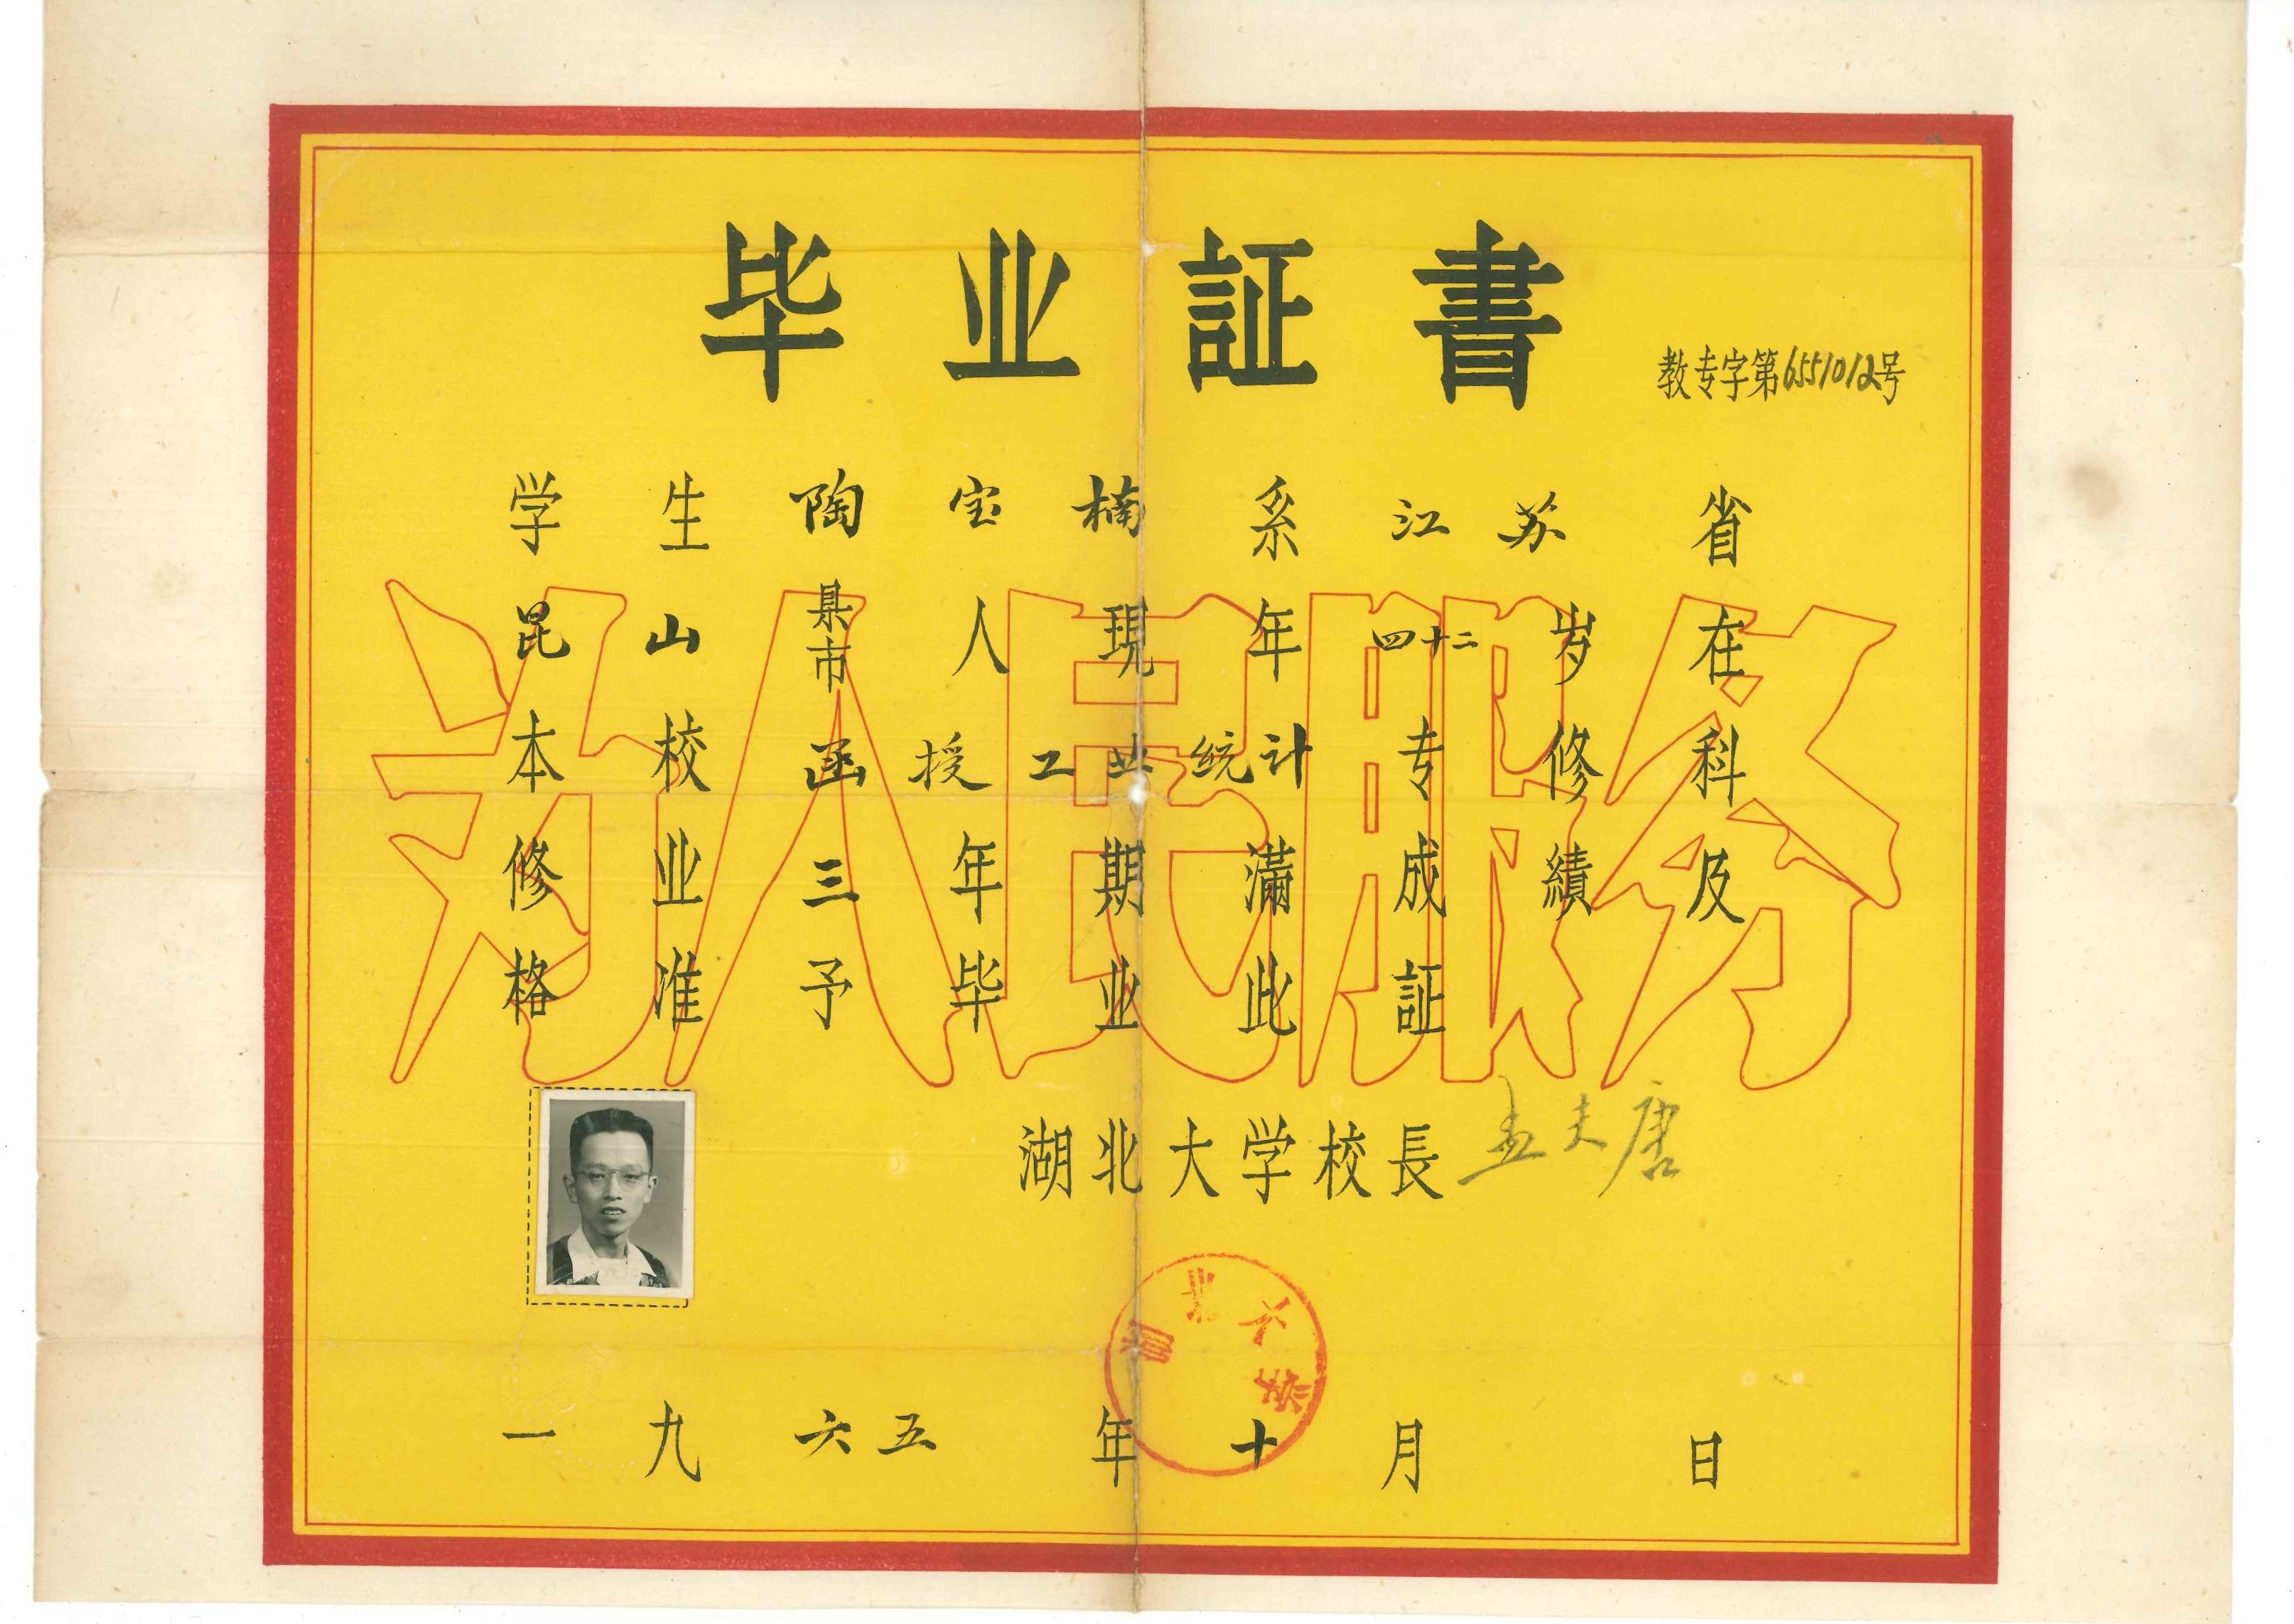 毕业証書
教专字第6551012号
学生陶宝楠系江苏省
昆山県市人現年四十二岁在
本校函授工业统计专修科
修业三年期滿成績及
格准予毕业此証
为人民服务
湖北大学校長孟夫唐
湖北大学
一九六五年十月 日